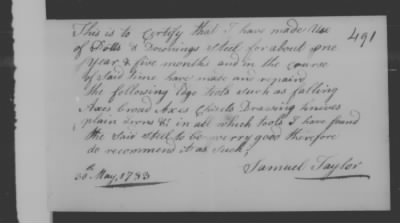 491
This is to Certify that I have made Use
of Dotts & Downings Steel for about one
Year & five months and in the course
of said time have made and repaird
the following Edge Tools such as falling
Axes broad Axes Chizels Drawing knives
plain irons &c in all which tools I have found
the said steel to be verry good therefore
do recommend it as Such,
Samuel Taylor
30th May, 1783